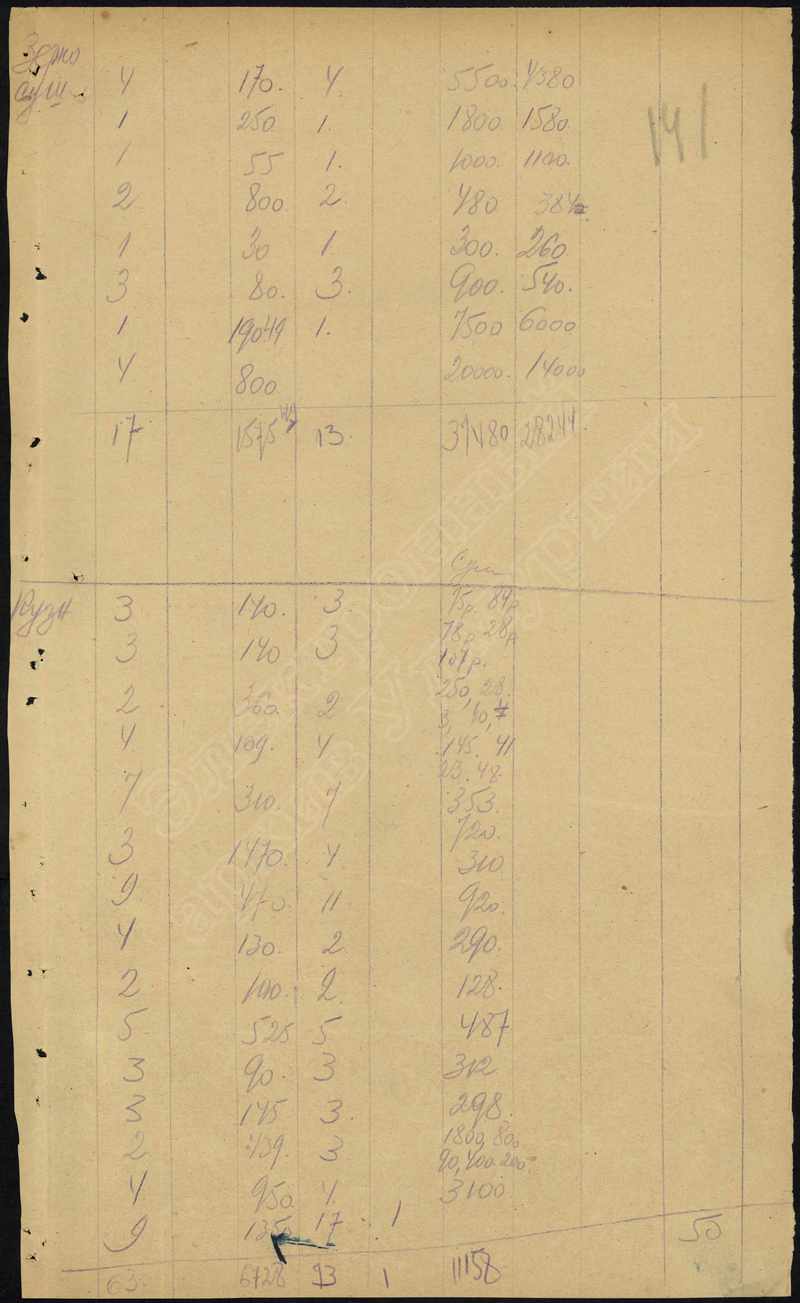 Зерно
суш. 4 170. 4. 5500. 4380
1 250 1. 1800 1580
141
1 55 1. 1000. 1100.
2 800 2. 480 384
1 30 1. 300. 260
3 80. 3. 900. 540.
1 1. 7500 6000
4 800 20000. 14000
17 1575 13. 37480 28244
Кузн 3 140. 3. 75р. 84р
3 140 3 78р 28р
107р.
2 360. 2 250, 28.
3, 10,
4 109. 4 145. 41
23. 48
7 310. 7 353.
720.
3 1470. 4. 310
9 470. 11 920.
4 130. 2. 290.
2 100. 2. 128.
5 525 5 487
3 90. 3 312
3 145 3. 298.
2 439. 3 1800, 800
90, 400. 200.
4 950 4. 3100
9 1350 17 1 50
63. 6728 93 1 11158